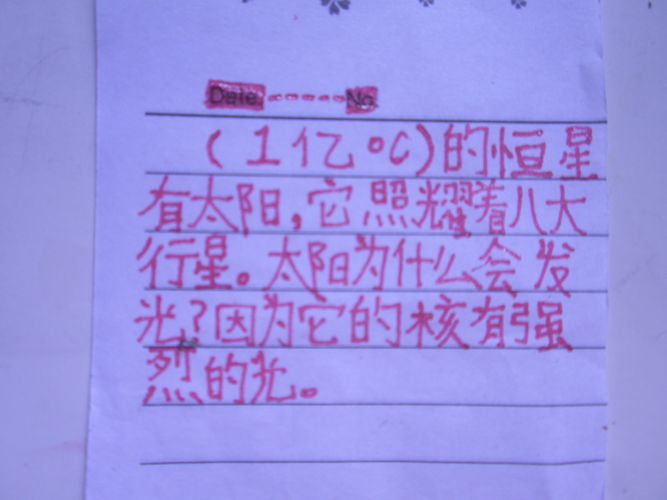 Date No
(1亿°C)的恒星
有太阳,它照耀着八大
行星。太阳为什么会发
光?因为它的核有强
烈的光。